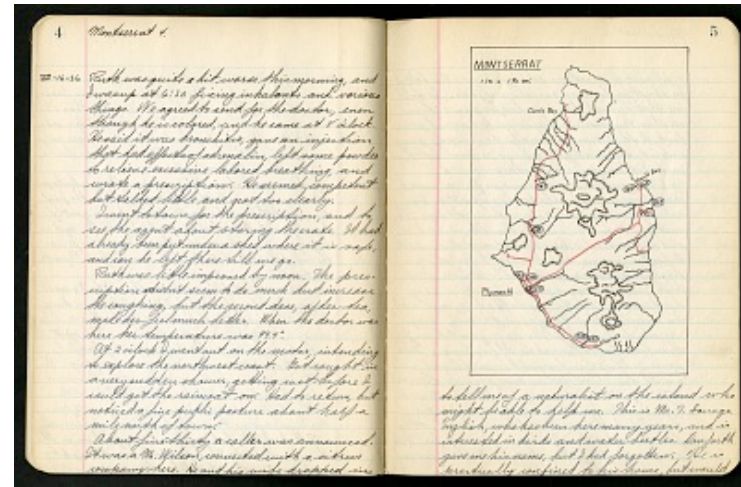 4
Montserrat 4.
Ruth was quite a bit worse this morning, and
I was up at 6:30 fixing inhalants and various
things. We agreed to send for the doctor, even
though he is colored, and he came at 8 o'clock.
He said it was bronchitis, gave an injection
that had effects of adrenalin, left some powders
to relieve excessive labored breathing, and
wrote a prescription. He seemed competent
but talked little and not too clearly.
I went to town for the prescription, and to
see the agent about storing the crate. It had
already been put under a shed where it is safe,
and can be left there till we go.
Ruth was little improved by noon. The pres-
cription didn't seem to do much but increase
the coughing, but the second dose, after tea,
made her feel much better. When the doctor was
here her temperature was 99.4°
At 2 o'clock I went out on the motor, intending
to explore the northwest coast. Got caught in
a very sudden shower, getting wet before I
could get the raincoat on. Had to return, but
noticed a fine public pasture about half a
mile north of town.
About five-thirty a caller was announced.
It was a Mr. Wilson, connected with a citrus
company here. He and his wife dropped in
5
MONTSERRAT
Carr's Bay
Plymouth
to tell me of a naturalist on the island who
might be able to help me. This is Mr. T. Savage
English, who has been here many years, and is
interested in birds and water beetles. Danforth
gave me his name, but I had forgotten. He is
practically confined to his house, but would